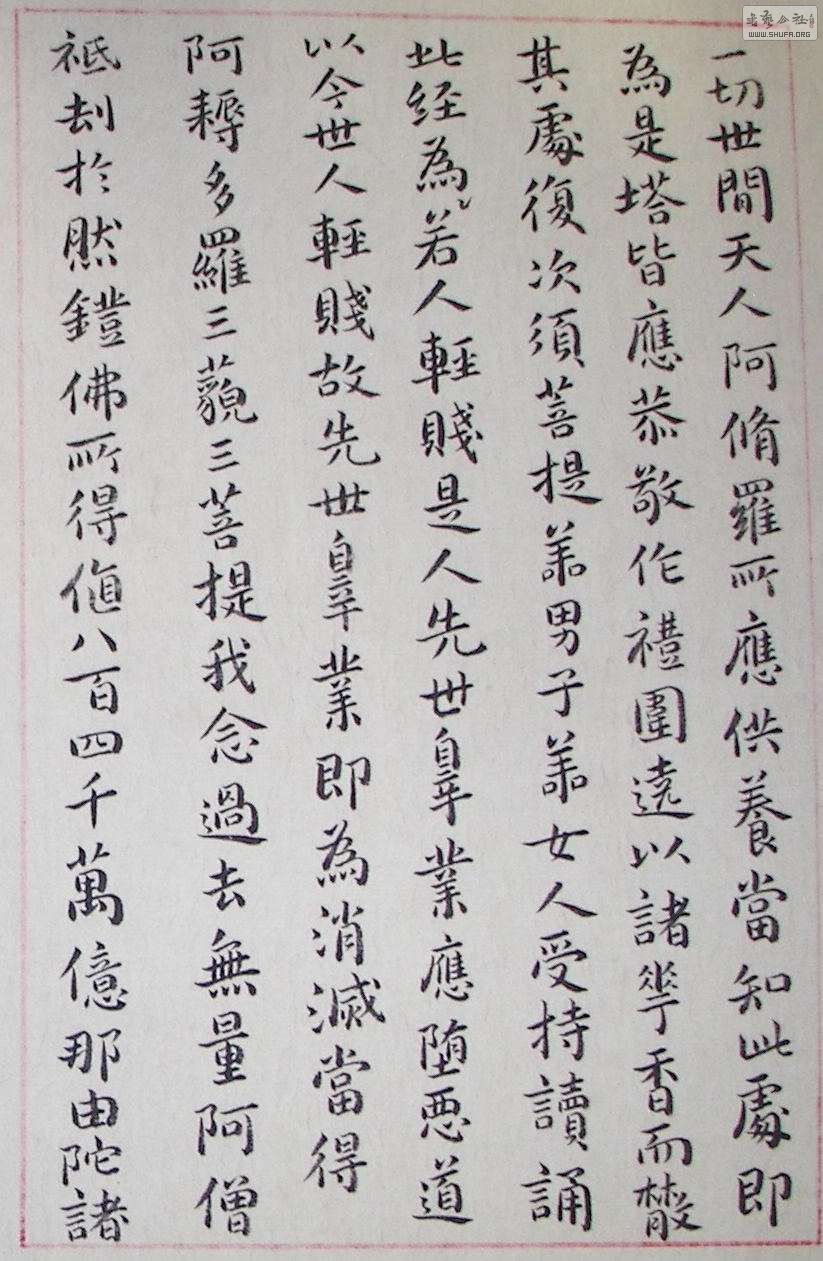 一切世間天人阿脩羅所應供養當知此處即
為是塔皆應恭敬作禮圍遶以諸華香而散
其處復次須菩提善男子善女人受持讀誦
此經為若人輕賤是人先世辠業應墮惡道
以今世人輕賤故先世辠業即為消滅當得
阿耨多羅三藐三菩提我念過去無量阿僧
祇劫於然鐙佛所得值八百四千萬億那由陀諸
书艺公社
WWW.SHUFA.ORG